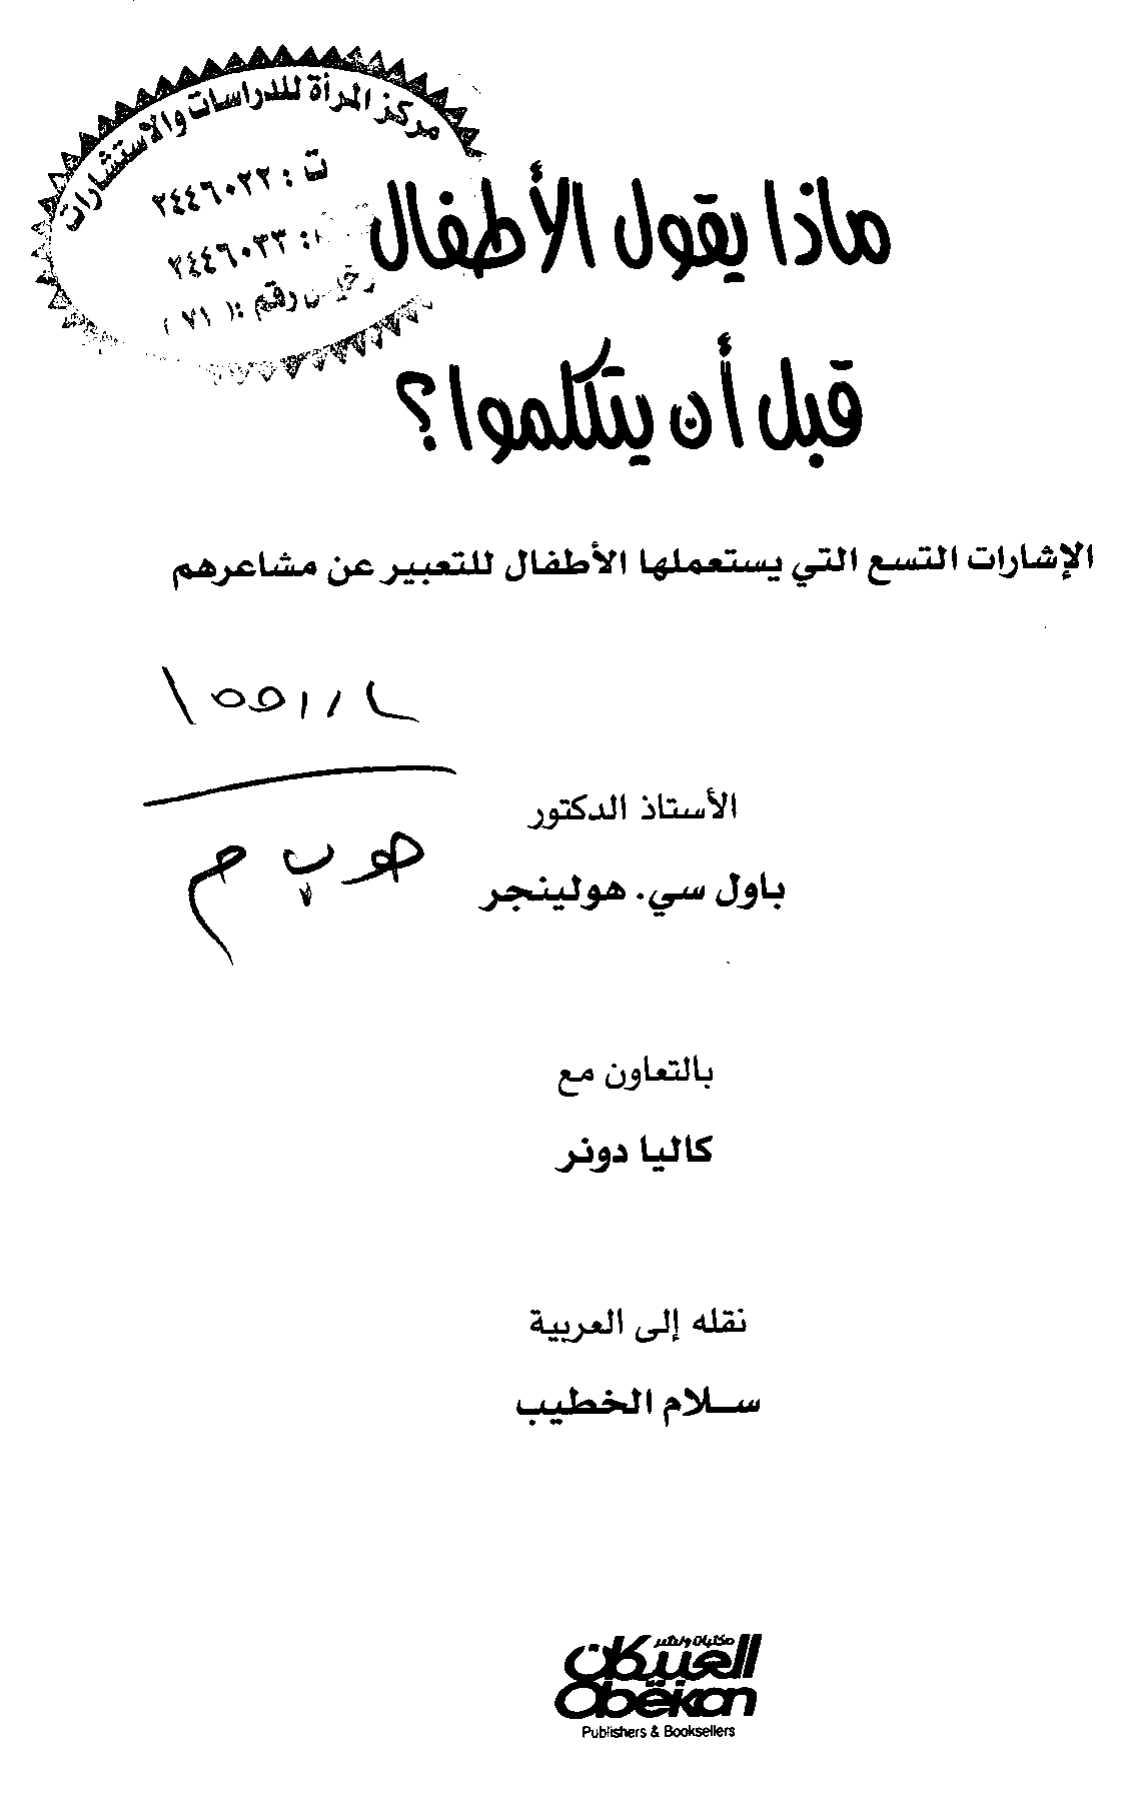 مركز المرأة للدراسات والاستشارات
ت : ٢٤٤٦٠٢٢
: ٢٤٤٦٠٣٣
رقم :( ٧١ )
ماذا يقول الأطفال
قبل أن يتكلموا؟
الإشارات التسع التي يستعملها الأطفال للتعبير عن مشاعرهم
هو ب م
الأستاذ الدكتور
باول سي. هولينجر
بالتعاون مع
كاليا دونر
نقله إلى العربية
سلام الخطيب
العبيكان
Obëkan
Publishers & Booksellers